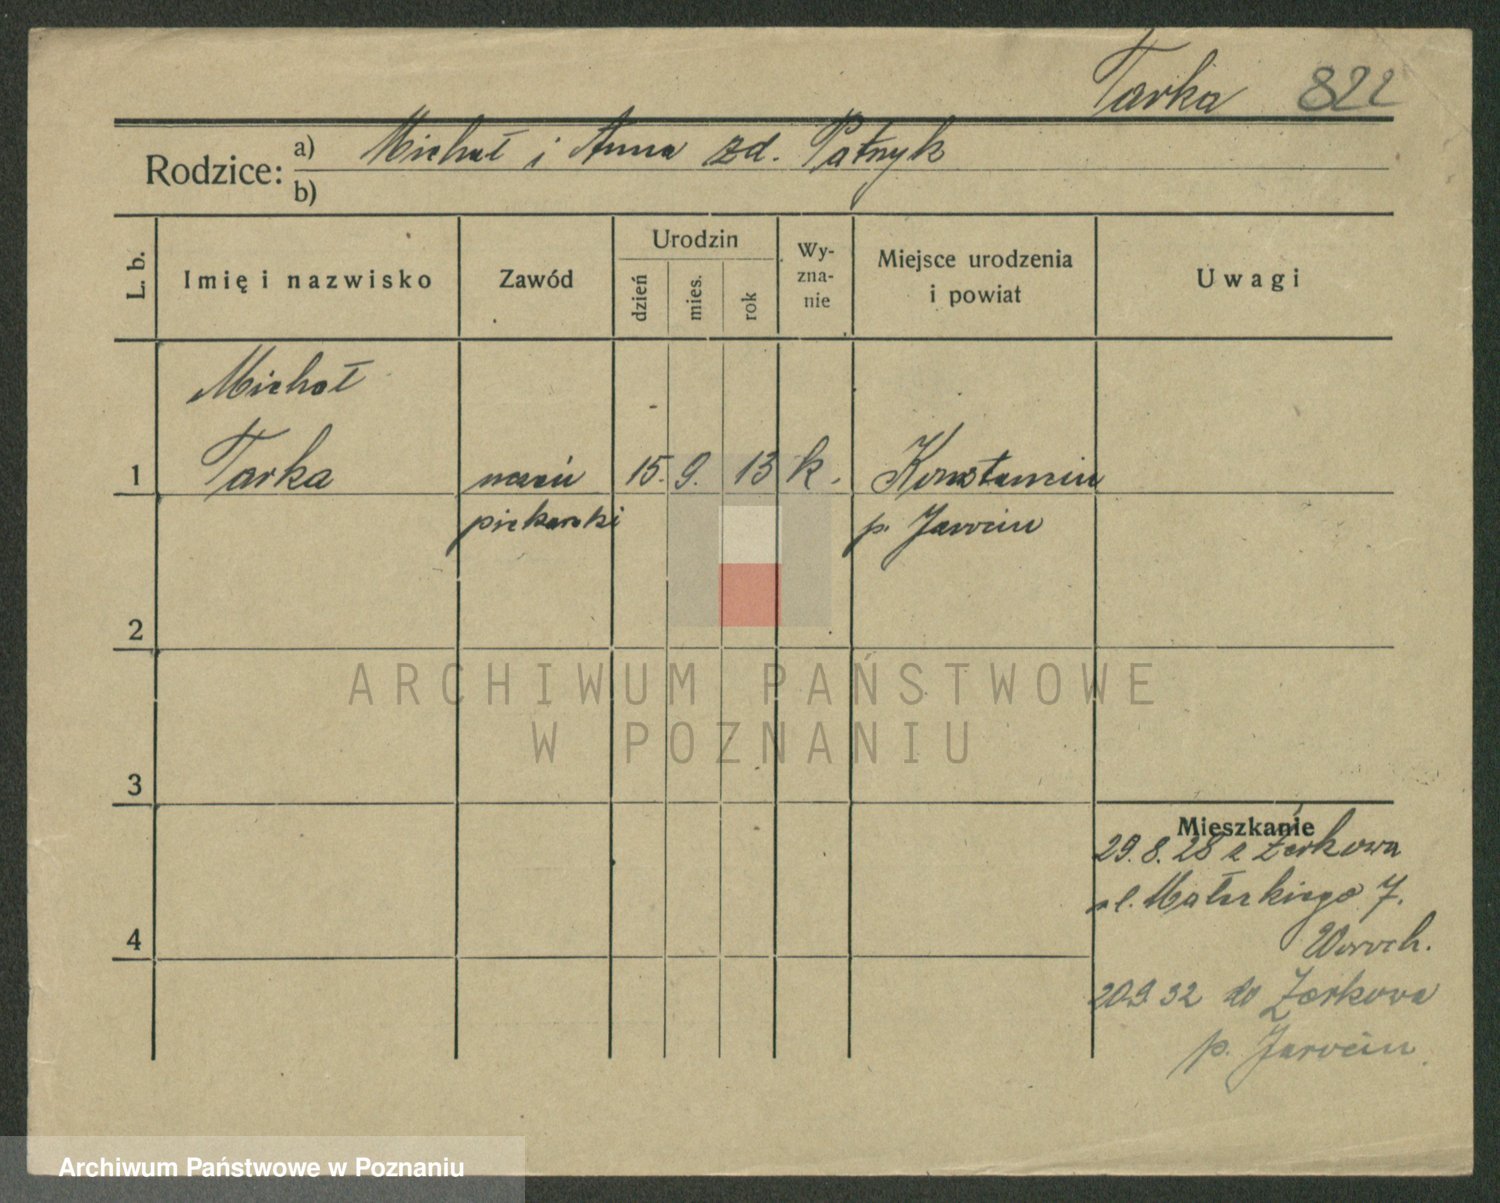 Tarka 822
Rodzice: a) Michał i Anna zd. Patnyk
b)
L. b. Imię i nazwisko Zawód Urodzin dzień mies. rok Wy-zna-nie Miejsce urodzenia i powiat Uwagi
Michał
1 Tarka uczeń 15. 9. 13 k. Konstancin
piekarski p. Jarocin
2
ARCHIWUM PAŃSTWOWE
W POZNANIU
3
Mieszkanie
29.8.28 z Żerkowa
ul. Małeckiego 7.
4
20.9.32 do Żerkowa
p. Jarocin
Archiwum Państwowe w Poznaniu